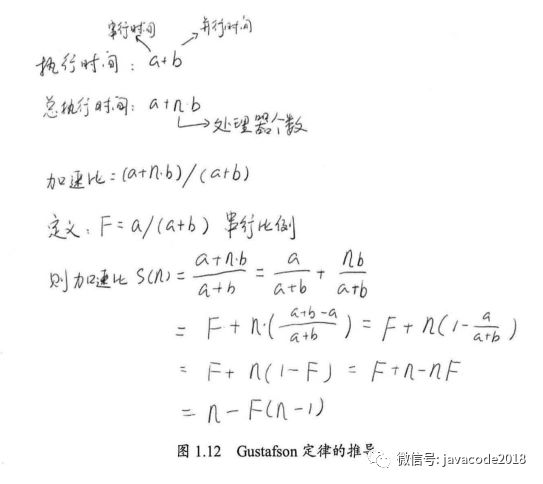 串行时间 并行时间
执行时间：a+b
总执行时间：a+n·b
处理器个数
加速比=(a+n·b)/(a+b)
定义：F=a/(a+b) 串行比例
则加速比 S(n)= (a+n·b)/(a+b) = a/(a+b) + nb/(a+b)
= F+n·((a+b-a)/(a+b)) = F+n(1-a/(a+b))
= F+n(1-F) = F+n-nF
= n-F(n-1)
图 1.12 Gustafson 定律的推导
微信号: javacode2018